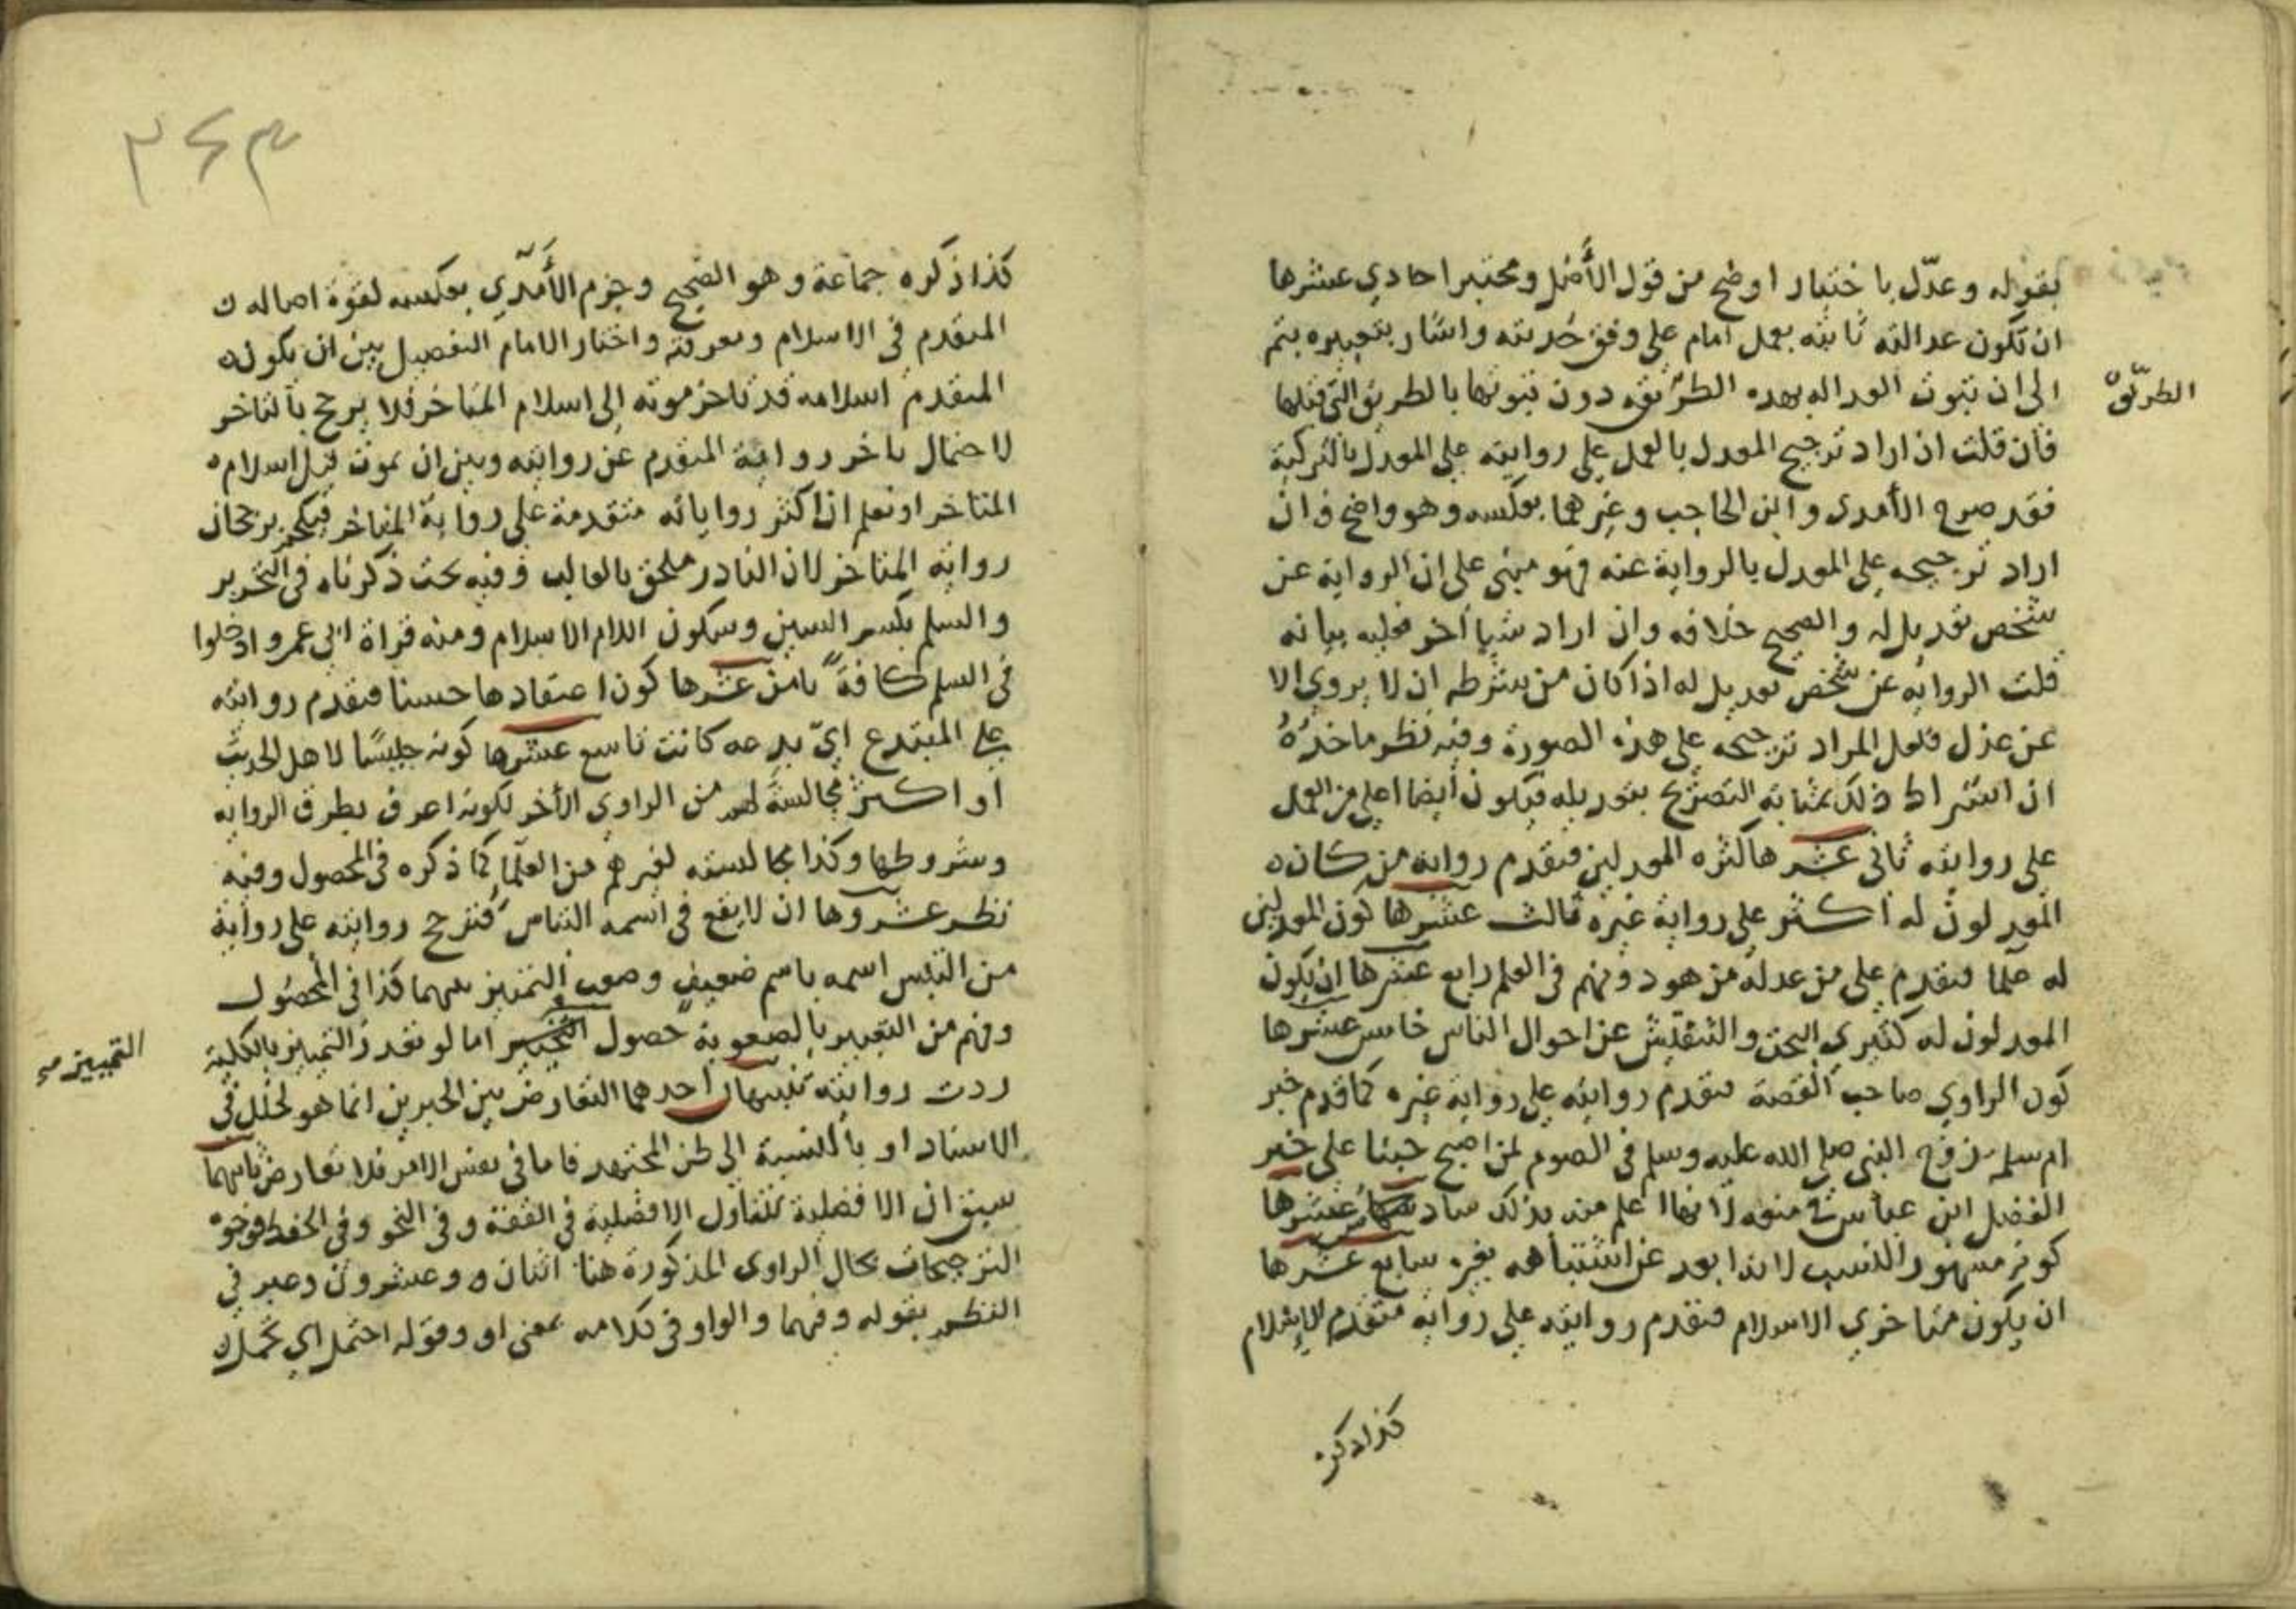 بقوله وعدّل باختبار اوضح من قول الأصل ومختبرا حادي عشرها
ان تكون عدالته ثابتة بعمل امام على وفق حديثه واشار بتعبيره بثم
الى ان ثبوت العدالة بهذه الطريقة دون ثبوتها بالطريق التي قبلها
الطريق
فان قلت ان اراد ترجيح المعدل بالعمل على روايته على المعدل بالتزكية
فقد صرح الآمدى وابن الحاجب وغيرهما بعكسه وهو واضح وان
اراد ترجيحه على المعدل بالرواية عنه فهو مبني على ان الرواية عن
شخص تعديل له والصحيح خلافه وان اراد شيا آخر فعليه بيانه
قلت الرواية عن شخص تعديل له اذا كان من شرطه ان لا يروي الا
عن عدل فلعل المراد ترجيحه على هذه الصورة وفيه نظر ماخذه
ان اشتراط ذلك بمثابة التصريح بتعديله فيكون أيضا اعلى من العمل
على روايته ثاني عشرها كثرة المعدلين فتقدم رواية من كان
المعدلون له أكثر على رواية غيره ثالث عشرها كون المعدلين
له علما فتقدم على من عدله من هو دونهم في العلم رابع عشرها ان يكون
المعدلون له كثيري البحث والتفتيش عن احوال الناس خامس عشرها
كون الراوي صاحب القصة فتقدم روايته على رواية غيره كما قدم خبر
ام سلمة زوج النبي صلى الله عليه وسلم في الصوم لمن اصبح جنبا على خبر
الفضل ابن عباس في منعه لانها اعلم منه بذلك سادس عشرها
كونه مشهور النسب لانه ابعد عن اشتباهه بغيره سابع عشرها
ان يكون متاخري الاسلام فتقدم روايته على رواية متقدم الإسلام
كذا ذكره
٣٦٣
كذا ذكره جماعة وهو الصحيح وجزم الآمدي بعكسه لقوة اصالة
المتقدم في الاسلام ومعرفته واختار الامام التفصيل بين ان يكون
المتقدم اسلامه قد تاخر موته إلى اسلام المتاخر فلا يرجح بالتاخر
لاحتمال تاخر رواية المتقدم عن روايته وبين ان يموت قبل اسلام
المتاخر او نعلم ان اكثر رواياته متقدمة على رواية المتاخر فيحكم برجحان
رواية المتاخر لان النادر ملحق بالغالب وفيه بحث ذكرناه في التحرير
والسلم بكسر السين وسكون اللام الاسلام ومنه قراة ابي عمرو ادخلوا
في السلم كافة ثامن عشرها كون اعتقادها حسنا فتقدم روايته
على المبتدع ايّ بدعة كانت تاسع عشرها كونه جليسًا لاهل الحديث
او اكثر مجالسة لهم من الراوي الآخر لكونه اعرف بطرق الرواية
وشروطها وكذا مجالسته لغيرهم من العلما كما ذكره في المحصول وفيه
نظر عشروها ان لا يقع في اسمه التباس فترجح روايته على رواية
من التبس اسمه باسم ضعيف وصعب التمييز بينهما كذا في المحصول
وفهم من التعبير بالصعوبة حصول التخيير اما لو تعذر التمييز بالكلية
التمييز صح
ردت روايته تنبيهان احدهما التعارض بين الخبرين انما هو لخلل في
الاسناد او بالنسبة الى ظن المجتهد فاما في نفس الامر فلا تعارض ثانيهما
سبق ان الافضلية تتناول الافضلية في الفقه وفي النحو وفي الحفظ فوجوه
الترجيحات بحال الراوى المذكورة هنا اثنان وعشرون وعبر في
النظم بقوله وفهما والواو في كلامه بمعنى او وقوله احتمل اي تحمل